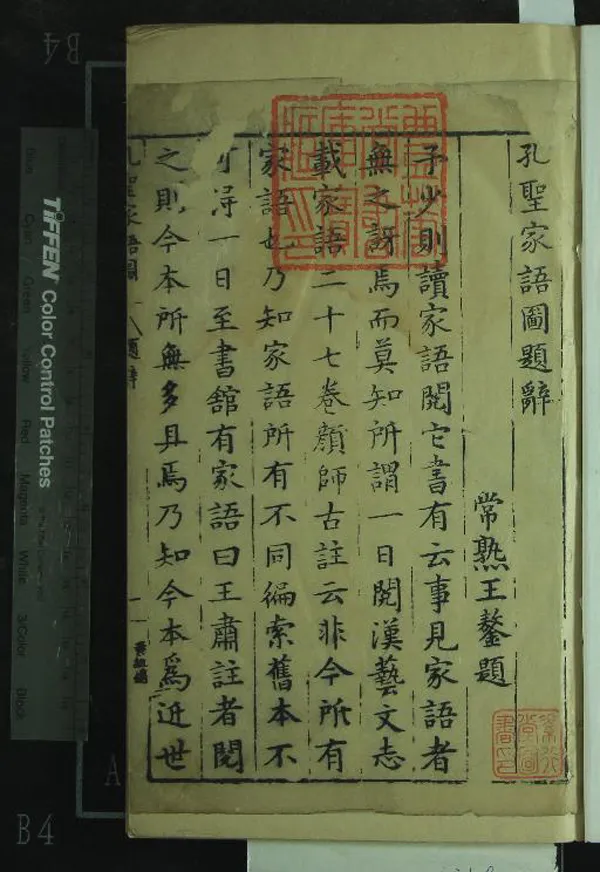 孔聖家語圖題辭
常熟王鏊題
予少則讀家語閱它書有云事見家語者
無之訝焉而莫知所謂一日閱漢藝文志
載家語二十七卷顏師古註云非今所有
家語也乃知家語所有不同徧索舊本不
可淂一日至書舘有家語曰王肅註者閱
之則今本所無多具焉乃知今本爲近世
孔聖家語圖
題辭
一
B4
TIFFEN Color Control Patches
Blue
Cyan
Green
Yellow
Red
Magenta
White
3/Color
Black
A
B4